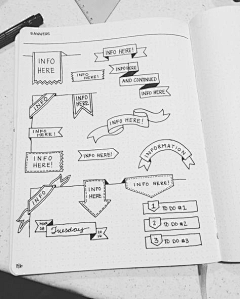 BANNERS
INFO HERE!
INFO
HERE
INFO HERE
INFO HERE!
AND CONTINUED
INFO HERE
INFO
INFO
HERE
INFO HERE!
INFO HERE!
INFO
HERE!
INFO HERE!
INFORMATION
INFO HERE!
INFO
HERE!
INFO HERE!
Tuesday
1 TO DO #1
2 TO DO #2
3 TO DO #3